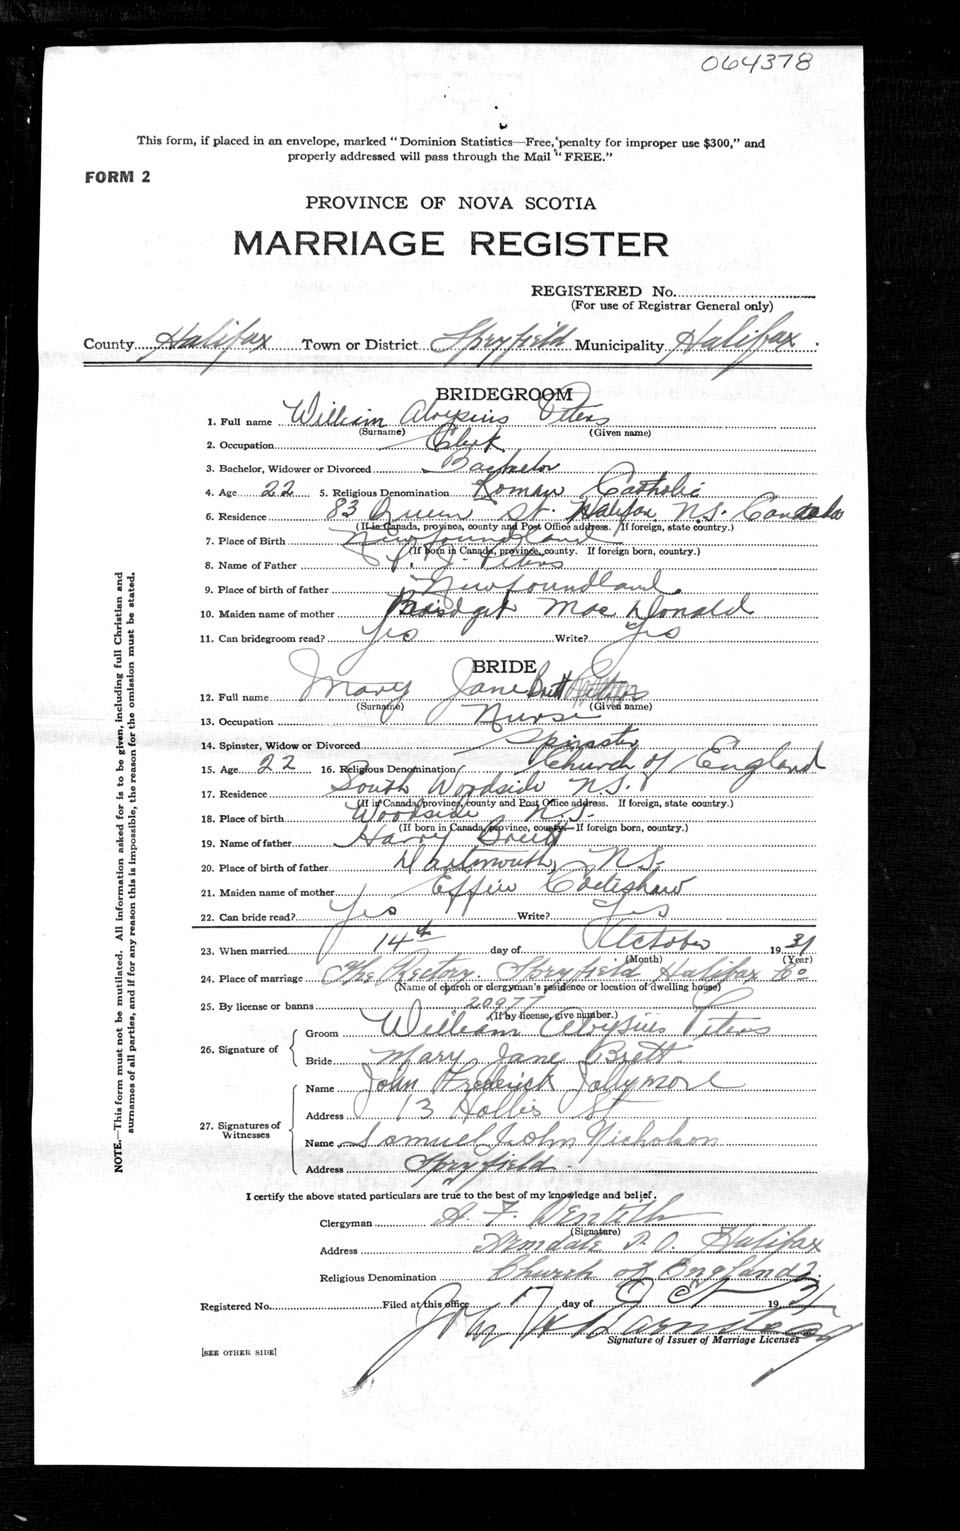 064378
This form, if placed in an envelope, marked "Dominion Statistics—Free, penalty for improper use $300," and
properly addressed will pass through the Mail "FREE."
FORM 2
PROVINCE OF NOVA SCOTIA
MARRIAGE REGISTER
REGISTERED No.
(For use of Registrar General only)
County Halifax Town or District Spryfield Municipality Halifax
BRIDEGROOM
1. Full name William Aloysius Peters
(Surname) (Given name)
2. Occupation Clerk
3. Bachelor, Widower or Divorced Bachelor
4. Age 22 5. Religious Denomination Roman Catholic
6. Residence 83 Queen St. Halifax N.S. Canada
(If in Canada, province, county and Post Office address. If foreign, state country.)
7. Place of Birth Newfoundland
(If born in Canada, province, county. If foreign born, country.)
8. Name of Father P. J. Peters
9. Place of birth of father Newfoundland
10. Maiden name of mother Bridget Mac Donald
11. Can bridegroom read? Yes Write? Yes
BRIDE
12. Full name Mary Jane Brett
(Surname) (Given name)
13. Occupation Nurse
14. Spinster, Widow or Divorced Spinster
15. Age 22 16. Religious Denomination Church of England
17. Residence South Woodside N.S.
(If in Canada, province, county and Post Office address. If foreign, state country.)
18. Place of birth Woodside N.S.
(If born in Canada, province, county.—If foreign born, country.)
19. Name of father Harry Brett
20. Place of birth of father Dartmouth, N.S.
21. Maiden name of mother Effie
22. Can bride read? Yes Write? Yes
23. When married 14th day of October 19 31
(Month) (Year)
24. Place of marriage The Rectory. Spryfield Halifax Co
(Name of church or clergyman's residence or location of dwelling house)
25. By license or banns 20977
(If by license, give number.)
26. Signature of Groom William Aloysius Peters
Bride Mary Jane Brett
27. Signatures of Witnesses Name John Frederick Jollymore
Address 13 Hollis St
Name Samuel John Nicholson
Address Spryfield
I certify the above stated particulars are true to the best of my knowledge and belief.
Clergyman A. F.
(Signature)
Address Armdale P.O. Halifax
Religious Denomination Church of England
Registered No. Filed at this office 17 day of Oct 19 31
Signature of Issuer of Marriage Licenses
[SEE OTHER SIDE]
NOTE.—This form must not be mutilated. All information asked for is to be given, including full Christian and
surnames of all parties, and if for any reason this is impossible, the reason for the omission must be stated.